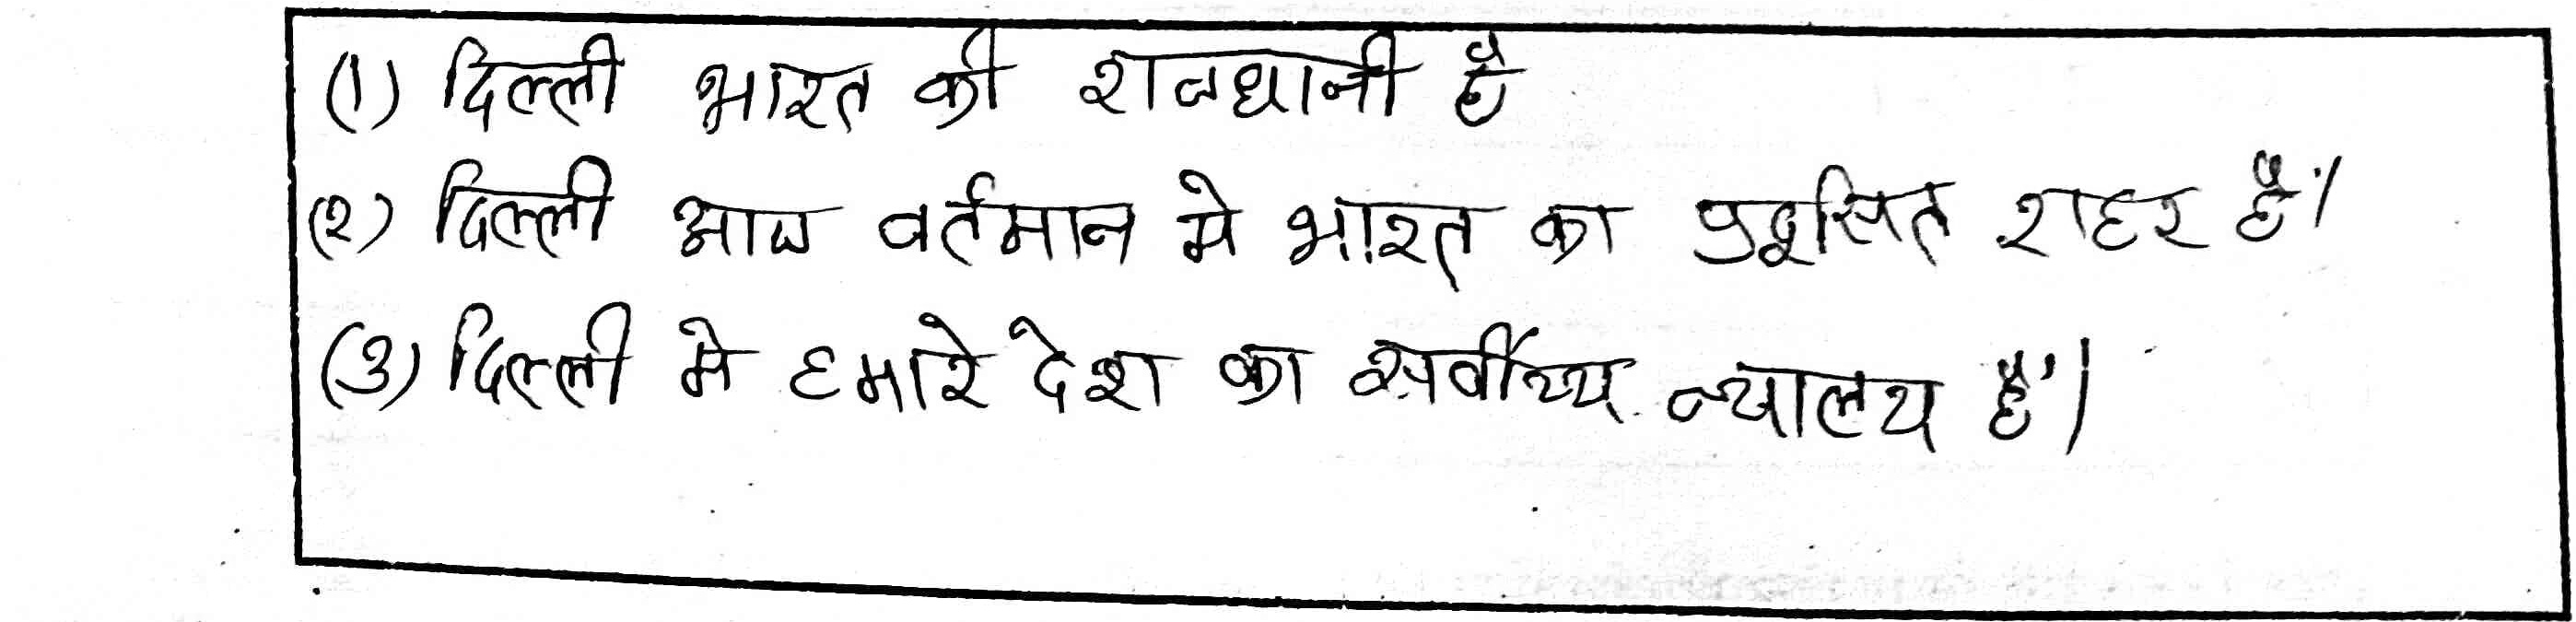 (1) दिल्ली भारत की राजधानी है
(२) दिल्ली आज वर्तमान मे भारत का प्रदूसित शहर है।
(3) दिल्ली मे हमारे देश का सर्वोच्य न्यालय है।